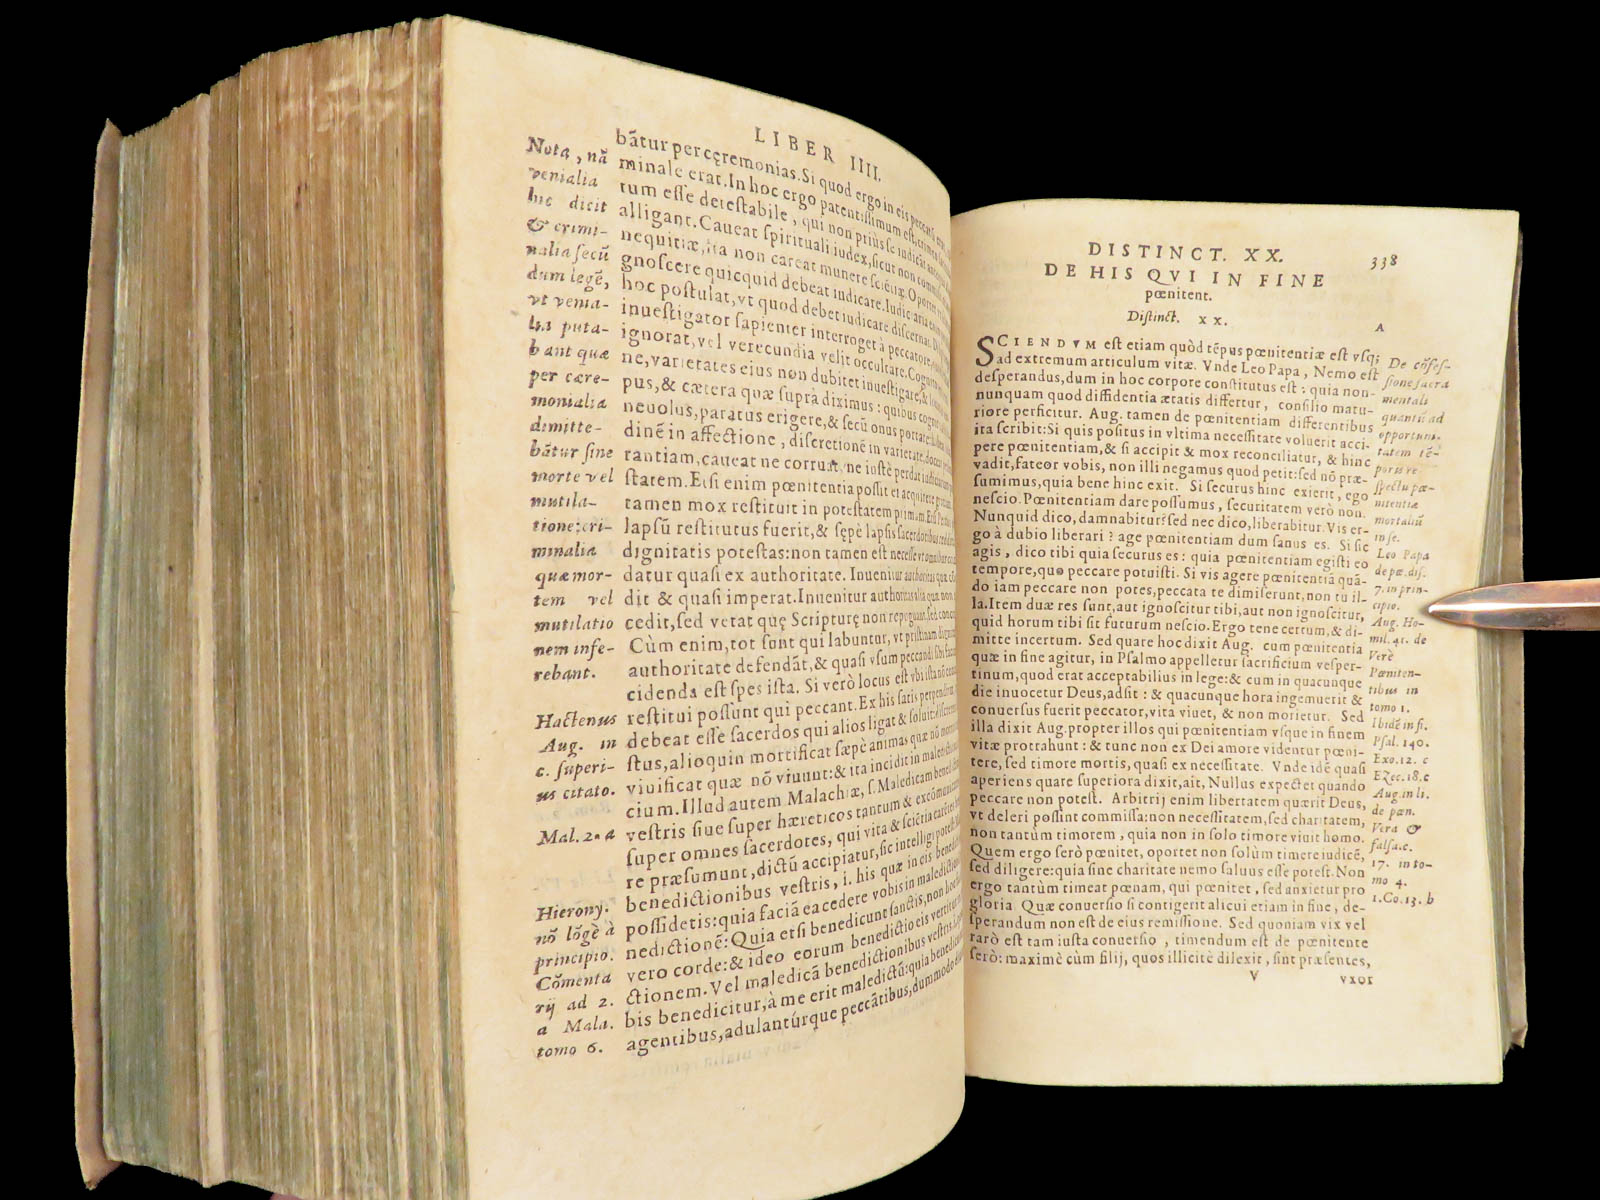 LIBER IIII.
Nota, nã
venialia
hic dicit
& crimi-
nalia secũ
dum legẽ,
vt venia-
lia puta-
bant quæ
per cære-
monialia
dimitte-
bãtur sine
morte vel
mutila-
tione: cri-
minalia
quæ mor-
tem vel
mutilatio
nem infe-
rebant.
Hactenus
Aug. in
c. superi-
us citato.
Mal. 2. a
Hierony.
nõ lõgè à
principio.
Cõmenta
rij ad 2.
a Mala.
tomo 6.
bãtur per cęremonias. Si quod ergo in eis
minale erat. In hoc ergo patentissimum est,
tum esse detestabile, qui non priùs se iudicãt
alligant. Caueat spiritualis iudex, sicut non
nequitiæ, ita non careat munere sciẽtiæ. Oportet
gnoscere quicquid debeat iudicare. Iudiciaria
hoc postulat, vt quod debet iudicare discernat.
inuestigator sapienter interroget à peccatore,
ignorat, vel verecundia velit occultare. Cognito
ne, varietates eius non dubitet inuestigare, &
pus, & cætera quæ suprà diximus: quibus cognitis
neuolus, paratus erigere, & secũ onus portare:
dinẽ in affectione, discretionẽ in varietate, doceat
rantiam, caueat ne corruat, ne iustè perdat
statem. Etsi enim pœnitentia possit et acquirere
tamen mox restituit in potestatem primam. Etsi
lapsũ restitutus fuerit, & sępè lapsis sacerdotibus
dignitatis potestas: non tamen est necesse vt
datur quasi ex authoritate. Inuenitur authoritas quæ
dit & quasi imperat. Inuenitur authoritas alia quæ non
cedit, sed vetat quę Scripturę non repugnant. Sed
Cùm enim, tot sunt qui labuntur, vt pristinam
authoritate defendãt, & quasi vsum peccandi sibi
cidenda est spes ista. Si verò locus est vbi ista nõ
restitui possunt qui peccant. Ex his satis perpenditur
debeat esse sacerdos qui alios ligat & soluit:
stus, alioquin mortificat sæpè animas quæ nõ
viuificat quæ nõ viuunt: & ita incidit in
cium. Illud autem Malachiæ, s. Maledicam
vestris siue super hæreticos tantum &
super omnes sacerdotes, qui vita & sciẽtia
re præsumunt, dictũ accipiatur, sic intelligi
benedictionibus vestris, i. his quæ in eis
possidetis: quia faciã ea cedere vobis in
nedictionẽ: Quia etsi benedicunt sanctis, non
vero corde: & ideo eorum benedictio eis
ctionem. Vel maledicã benedictionibus vestris,
bis benedicitur, à me erit maledictũ: quia
agentibus, adulantúrque peccãtibus, dummodo
DISTINCT. XX. 338
DE HIS QVI IN FINE
pœnitent.
Distinct. XX.
A
SCIENDVM est etiam quòd tẽpus pœnitentiæ est vsq;
ad extremum articulum vitæ. Vnde Leo Papa, Nemo est
desperandus, dum in hoc corpore constitutus est: quia non-
nunquam quod diffidentia ætatis differtur, consilio matu-
riore perficitur. Aug. tamen de pœnitentiam differentibus
ita scribit: Si quis positus in vltima necessitate voluerit acci-
pere pœnitentiam, & si accipit & mox reconciliatur, & hinc
vadit, fateor vobis, non illi negamus quod petit: sed nõ præ-
sumimus, quia bene hinc exit. Si securus hinc exierit, ego
nescio. Pœnitentiam dare possumus, securitatem verò non.
Nunquid dico, damnabitur? sed nec dico, liberabitur. Vis er-
go à dubio liberari? age pœnitentiam dum sanus es. Si sic
agis, dico tibi quia securus es: quia pœnitentiam egisti eo
tempore, quo peccare potuisti. Si vis agere pœnitentiã quã-
do iam peccare non potes, peccata te dimiserunt, non tu il-
la. Item duæ res sunt, aut ignoscitur tibi, aut non ignoscitur,
quid horum tibi sit futurum nescio. Ergo tene certum, & di-
mitte incertum. Sed quare hoc dixit Aug. cum pœnitentia
quæ in fine agitur, in Psalmo appelletur sacrificium vesper-
tinum, quod erat acceptabilius in lege: & cum in quacunque
die inuocetur Deus, adsit: & quacunque hora ingemuerit &
conuersus fuerit peccator, vita viuet, & non morietur. Sed
illa dixit Aug. propter illos qui pœnitentiam vsque in finem
vitæ protrahunt: & tunc non ex Dei amore videntur pœni-
tere, sed timore mortis, quasi ex necessitate. Vnde idẽ quasi
aperiens quare superiora dixit, ait, Nullus expectet quando
peccare non potest. Arbitrij enim libertatem quærit Deus,
vt deleri possint commissa: non necessitatem, sed charitatem,
non tantùm timorem, quia non in solo timore viuit homo.
Quem ergo serò pœnitet, oportet non solùm timere iudicẽ,
sed diligere: quia sine charitate nemo saluus esse potest. Non
ergo tantùm timeat pœnam, qui pœnitet, sed anxietur pro
gloria. Quæ conuersio si contigerit alicui etiam in fine, de-
sperandum non est de eius remissione. Sed quoniam vix vel
rarò est tam iusta conuersio, timendum est de pœnitente
serò: maximè cùm filij, quos illicitè dilexit, sint præsentes,
V vxor
De cõfes-
sione sacra
mentali
quantũ ad
opportuni-
tatem tẽ-
poris re-
spectu pœ-
nitentiæ
mortaliũ
in se.
Leo Papa
de pœ. dis.
7. in prin-
cipio.
Aug. Ho-
mil. 41. de
Verè
Pœniten-
tibus in
tomo 1.
Ibidẽ in fi.
Psal. 140.
Exo. 12. c
Ezec. 18. c
Aug. in li.
de pœn.
Vera &
falsa. c.
17. in to-
mo 4.
1. Co. 13. b